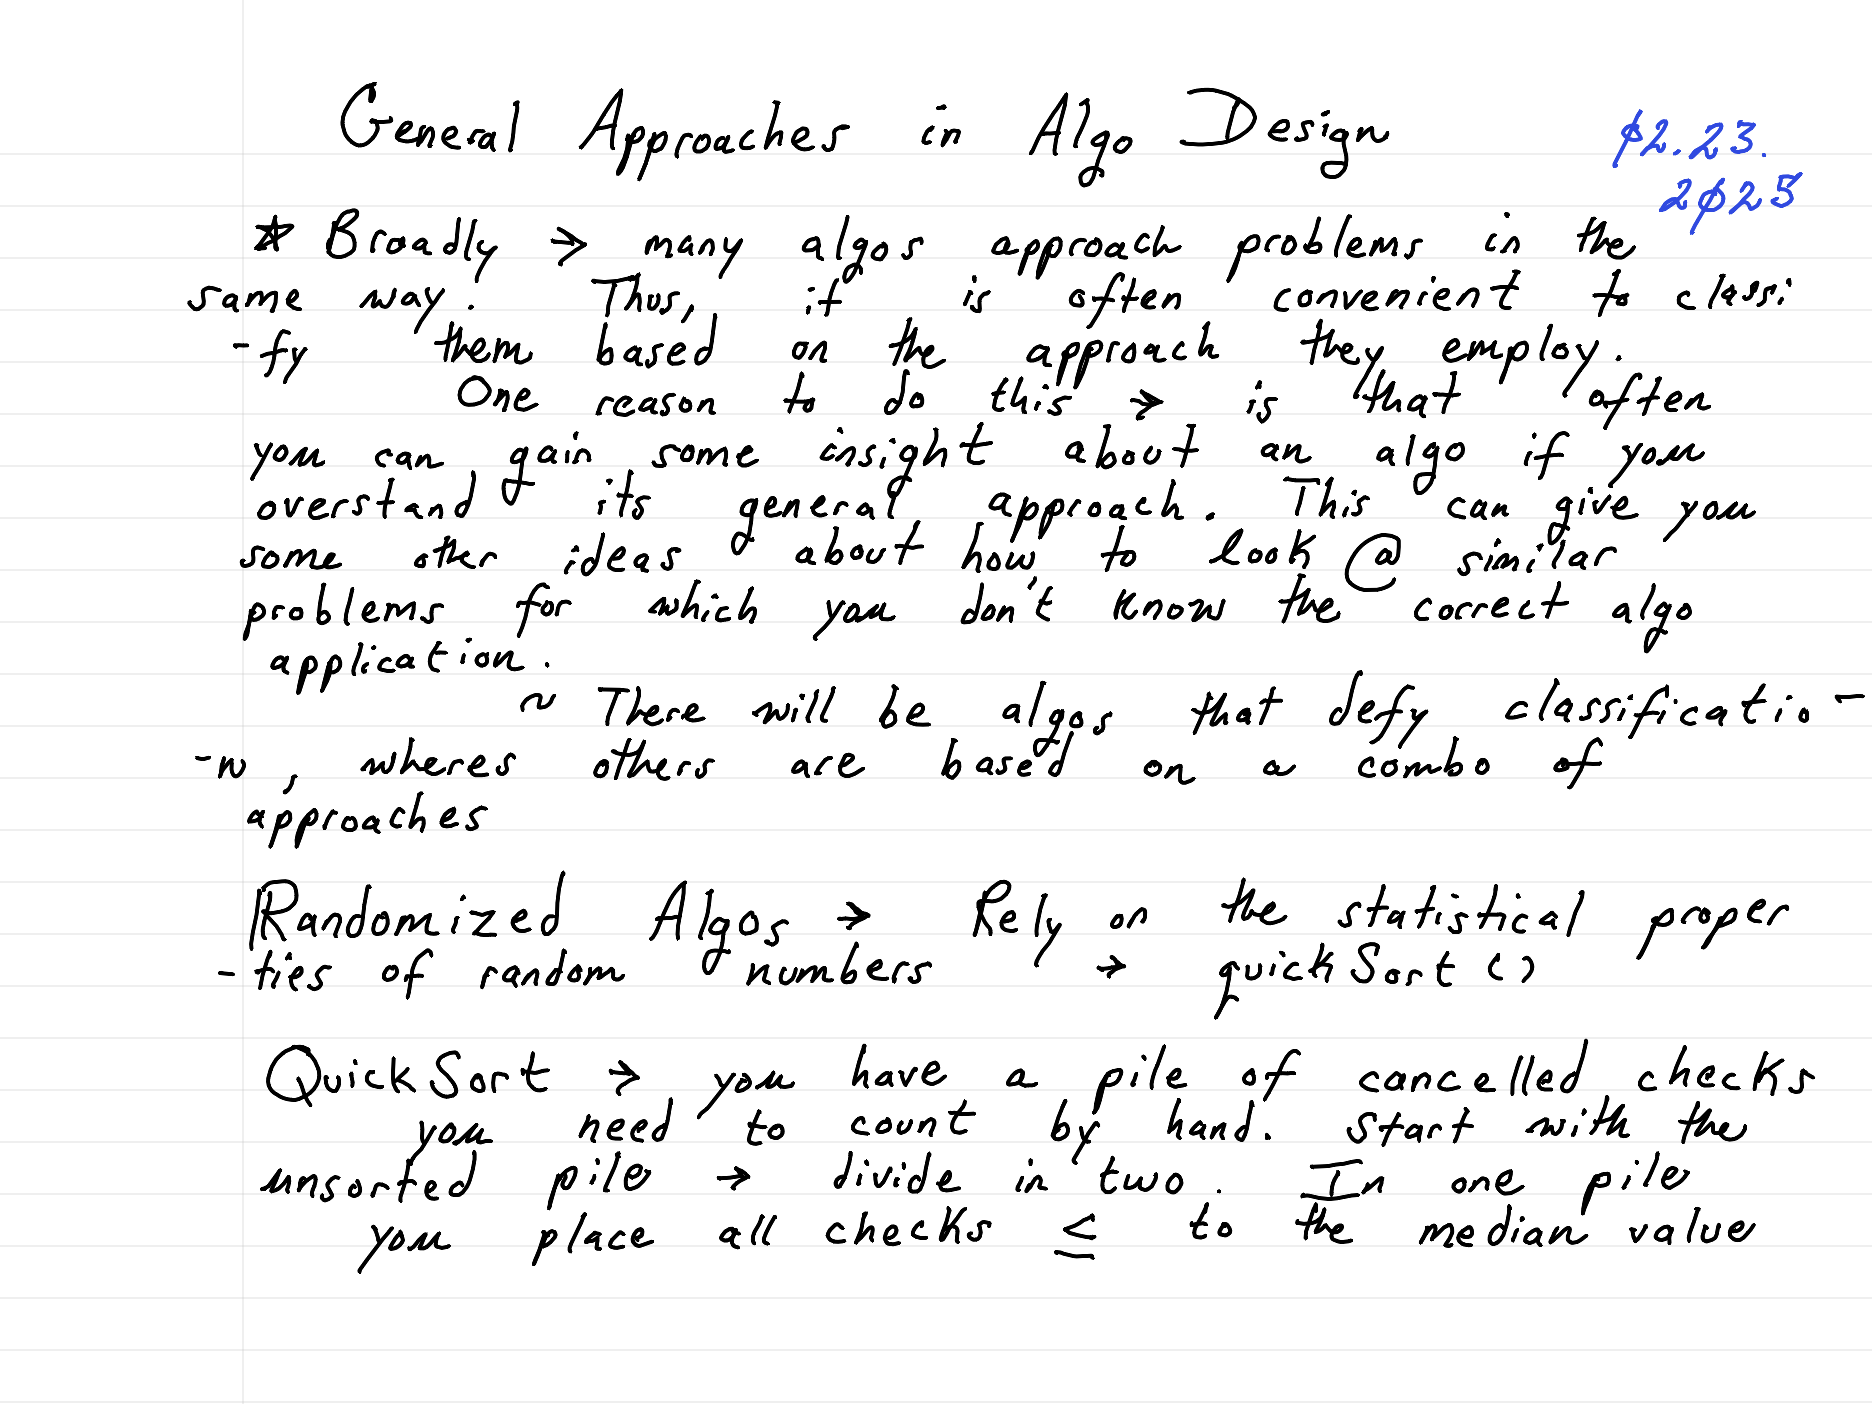 General Approaches in Algo Design
∅2.23.
2∅25
☆ Broadly → many algos approach problems in the
same way. Thus, it is often convenient to classi
-fy them based on the approach they employ.
One reason to do this → is that often
you can gain some insight about an algo if you
overstand its general approach. This can give you
some other ideas about how to look @ similar
problems for which you don't know the correct algo
application.
~ There will be algos that defy classificatio-
-n, wheres others are based on a combo of
approaches
Randomized Algos → Rely on the statistical proper
-ties of random numbers → quickSort()
QuickSort → you have a pile of cancelled checks
you need to count by hand. Start with the
unsorted pile → divide in two. In one pile
you place all checks ≤ to the median value